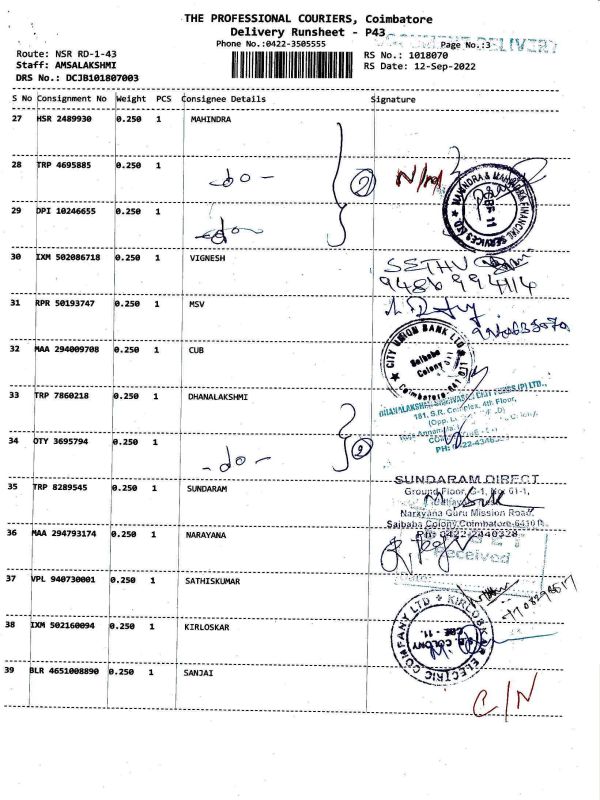 THE PROFESSIONAL COURIERS, Coimbatore
Delivery Runsheet - P43
Phone No.:0422-3505555 Page No.:3
Route: NSR RD-1-43 RS No.: 1018070
Staff: AMSALAKSHMI RS Date: 12-Sep-2022
DRS No.: DCJB101807003
S No Consignment No Weight PCS Consignee Details Signature
27 HSR 2489930 0.250 1 MAHINDRA
28 TRP 4695885 0.250 1 -do- 2 N/rd
MAHINDRA & MAHINDRA FINANCIAL SERVICES LTD.
29 DPI 10246655 0.250 1 -do-
30 IXM 502086718 0.250 1 VIGNESH SETHU
31 RPR 50193747 0.250 1 MSV
32 MAA 294009708 0.250 1 CUB
CITY UNION BANK LTD
Saibaba Colony
Coimbatore
33 TRP 7860218 0.250 1 DHANALAKSHMI
181, S.R. Complex, 4th Floor,
34 OTY 3695794 0.250 1 -do- 2
35 TRP 8289545 0.250 1 SUNDARAM
SUNDARAM DIRECT
Ground Floor, G-1, No. 61-1,
Narayana Guru Mission Road,
Saibaba Colony, Coimbatore-
Ph: 0422-2440328
36 MAA 294793174 0.250 1 NARAYANA
Received
37 VPL 940730001 0.250 1 SATHISKUMAR
38 IXM 502160094 0.250 1 KIRLOSKAR
KIRLOSKAR ELECTRIC COMPANY LTD
COLONY
CBE - 11.
39 BLR 4651008890 0.250 1 SANJAI
C/N